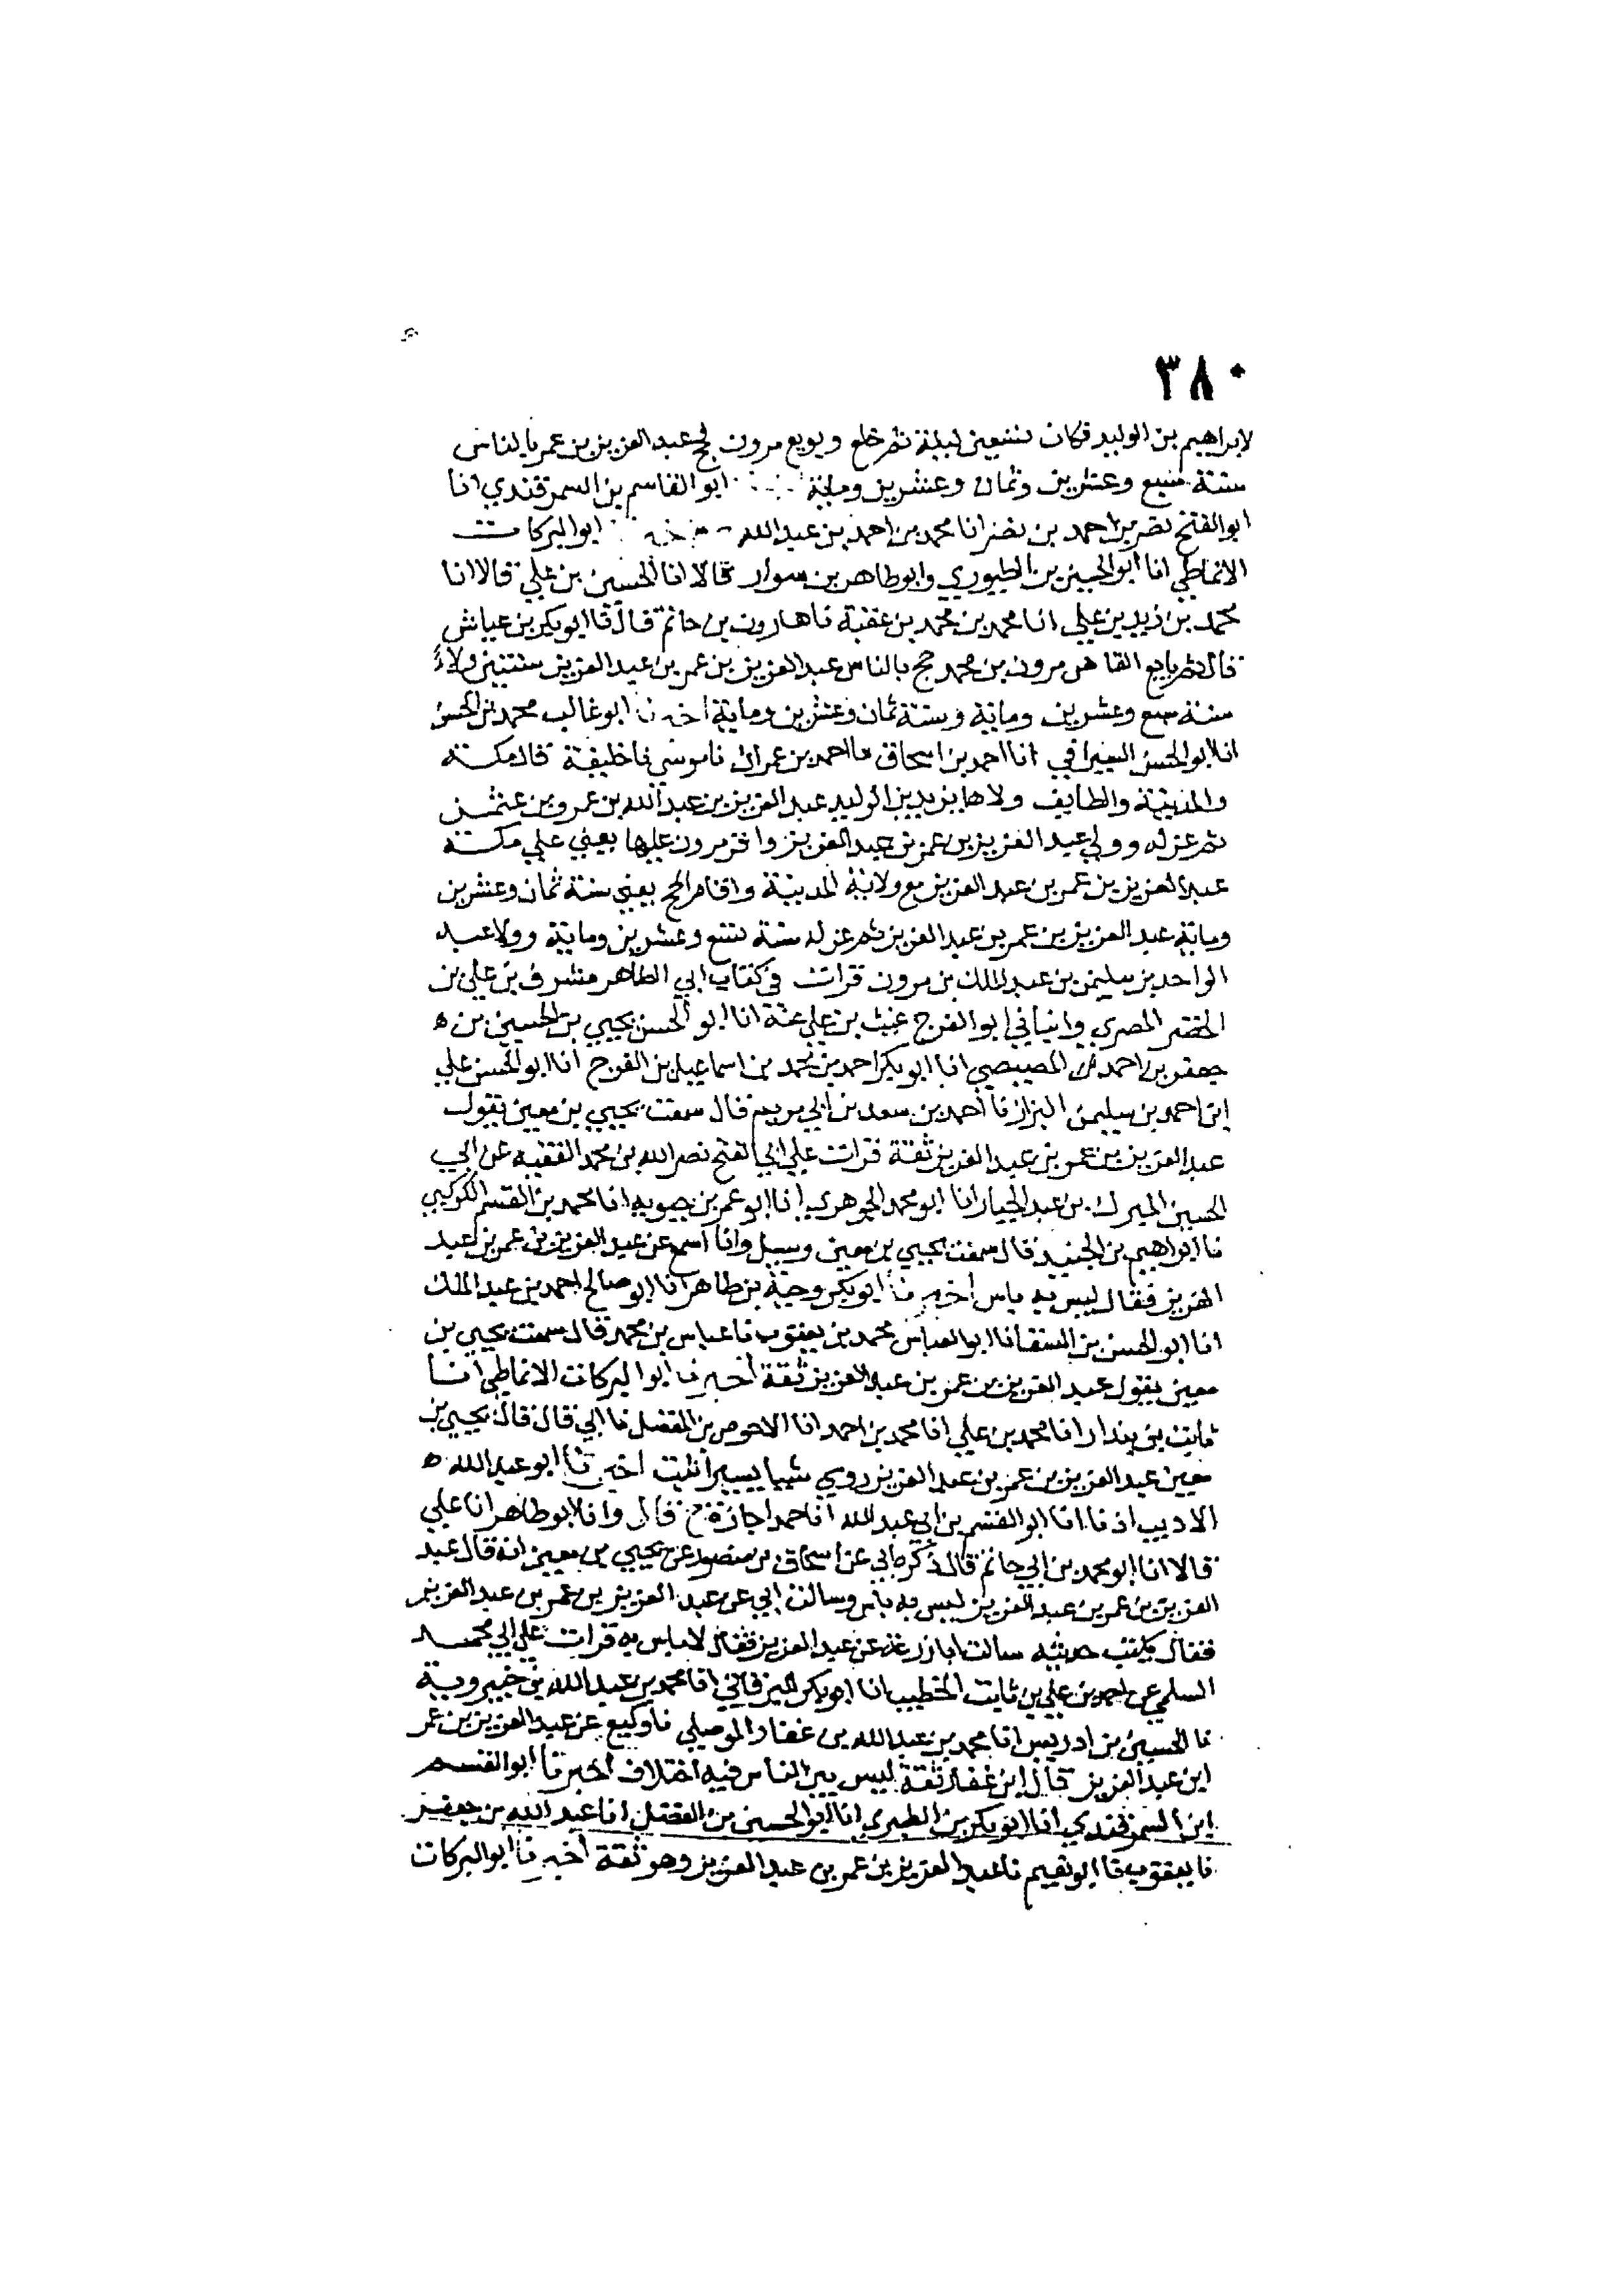 ٣٨٠
لابراهيم بن الوليد فكان تسعين ليلة ثم خلع وبويع مرون فحج عبد العزيز بن عمر بالناس
سنة سبع وعشرين وثمان وعشرين وماية ابو القاسم بن السمرقندي انا
ابو الفتح نصر بن احمد بن نصر انا محمد بن احمد بن عبد الله ابو البركات
الانماطي انا ابو الحسين بن الطيوري وابو طاهر بن سوار قالا انا الحسين بن علي قالا انا
محمد بن زيد بن علي انا محمد بن محمد بن عقبة نا هارون بن حاتم قال نا ابو بكر بن عياش
قال ثم بايع الناس مرون بن محمد حج بالناس عبد العزيز بن عمر بن عبد العزيز سنتين ولاء
سنة سبع وعشرين وماية وسنة ثمان وعشرين وماية اخبرنا ابو غالب محمد بن الحسن
انا ابو الحسن السيرافي انا احمد بن اسحاق نا احمد بن عمران نا موسي نا خليفة قال مكة
والمدينة والطايف ولاها يزيد بن الوليد عبد العزيز بن عبد الله بن عمرو بن عثمن
ثم عزله وولي عبد العزيز بن عمر بن عبد العزيز واقر مرون عليها يعني علي مكة
عبد العزيز بن عمر بن عبد العزيز مع ولاية المدينة واقام الحج يعني سنة ثمان وعشرين
وماية عبد العزيز بن عمر بن عبد العزيز ثم عزله سنة تسع وعشرين وماية وولا عبد
الواحد بن سليمن بن عبد الملك بن مرون قرات في كتاب ابي الطاهر مشرف بن علي بن
الخضر المصري وانباني ابو الفرج غيث بن علي عنه انا ابو الحسن يحيي بن الحسين بن ه
جعفر بن احمد المصيصي انا ابو بكر احمد بن محمد بن اسماعيل بن الفرج انا ابو الحسن علي
ابن احمد بن سليمن البزاز نا احمد بن سعد بن ابي مريم قال سمعت يحيي بن معين يقول
عبد العزيز بن عمر بن عبد العزيز ثقة قرات علي ابي الفتح نصر الله بن محمد الفقيه عن ابي
الحسين المبرك بن عبد الجبار انا ابو محمد الجوهري انا ابو عمر بن حيويه انا محمد بن القسم الكوكبي
نا ابراهيم بن الجنيد قال سمعت يحيي بن معين وسيل وانا اسمع عن عبد العزيز بن عمر بن عبد
العزيز فقال ليس به باس اخبرنا ابو بكر وجيه بن طاهر انا ابو صالح احمد بن عبد الملك
انا ابو الحسن بن السقا نا ابو العباس محمد بن يعقوب نا عباس بن محمد قال سمعت يحيي بن
معين يقول عبد العزيز بن عمر بن عبد العزيز ثقة اخبرنا ابو البركات الانماطي انا
ثابت بن بندار انا محمد بن علي انا محمد بن احمد انا الاحوص بن المفضل نا ابي قال قال يحيي بن
معين عبد العزيز بن عمر بن عبد العزيز روي شيا يسيرا ثبت اخبرنا ابو عبد الله ه
الاديب اذنا انا ابو القسم بن ابي عبد الله انا حمد اجازة ح قال وانا ابو طاهر انا علي
قالا انا ابو محمد بن ابي حاتم قال ذكره ابي عن اسحاق بن منصور عن يحيي بن معين انه قال عبد
العزيز بن عمر بن عبد العزيز ليس به باس وسالت ابي عن عبد العزيز بن عمر بن عبد العزيز
فقال يكتب حديثه سالت ابا زرعة عن عبد العزيز فقال لا باس به قرات علي ابي محمد
السلمي عن احمد بن علي بن ثابت الخطيب انا ابو بكر البرقاني انا محمد بن عبد الله بن خميروية
نا الحسين بن ادريس انا محمد بن عبد الله بن عمار الموصلي نا وكيع عن عبد العزيز بن عمر
ابن عبد العزيز قال ابن عمار ثقة ليس بين الناس فيه اختلاف اخبرنا ابو القسم
ابن السمرقندي انا ابو بكر بن الطبري انا ابو الحسين بن الفضل انا عبد الله بن جعفر
نا يعقوب نا ابو نعيم نا عبد العزيز بن عمر بن عبد العزيز وهو ثقة اخبرنا ابو البركات